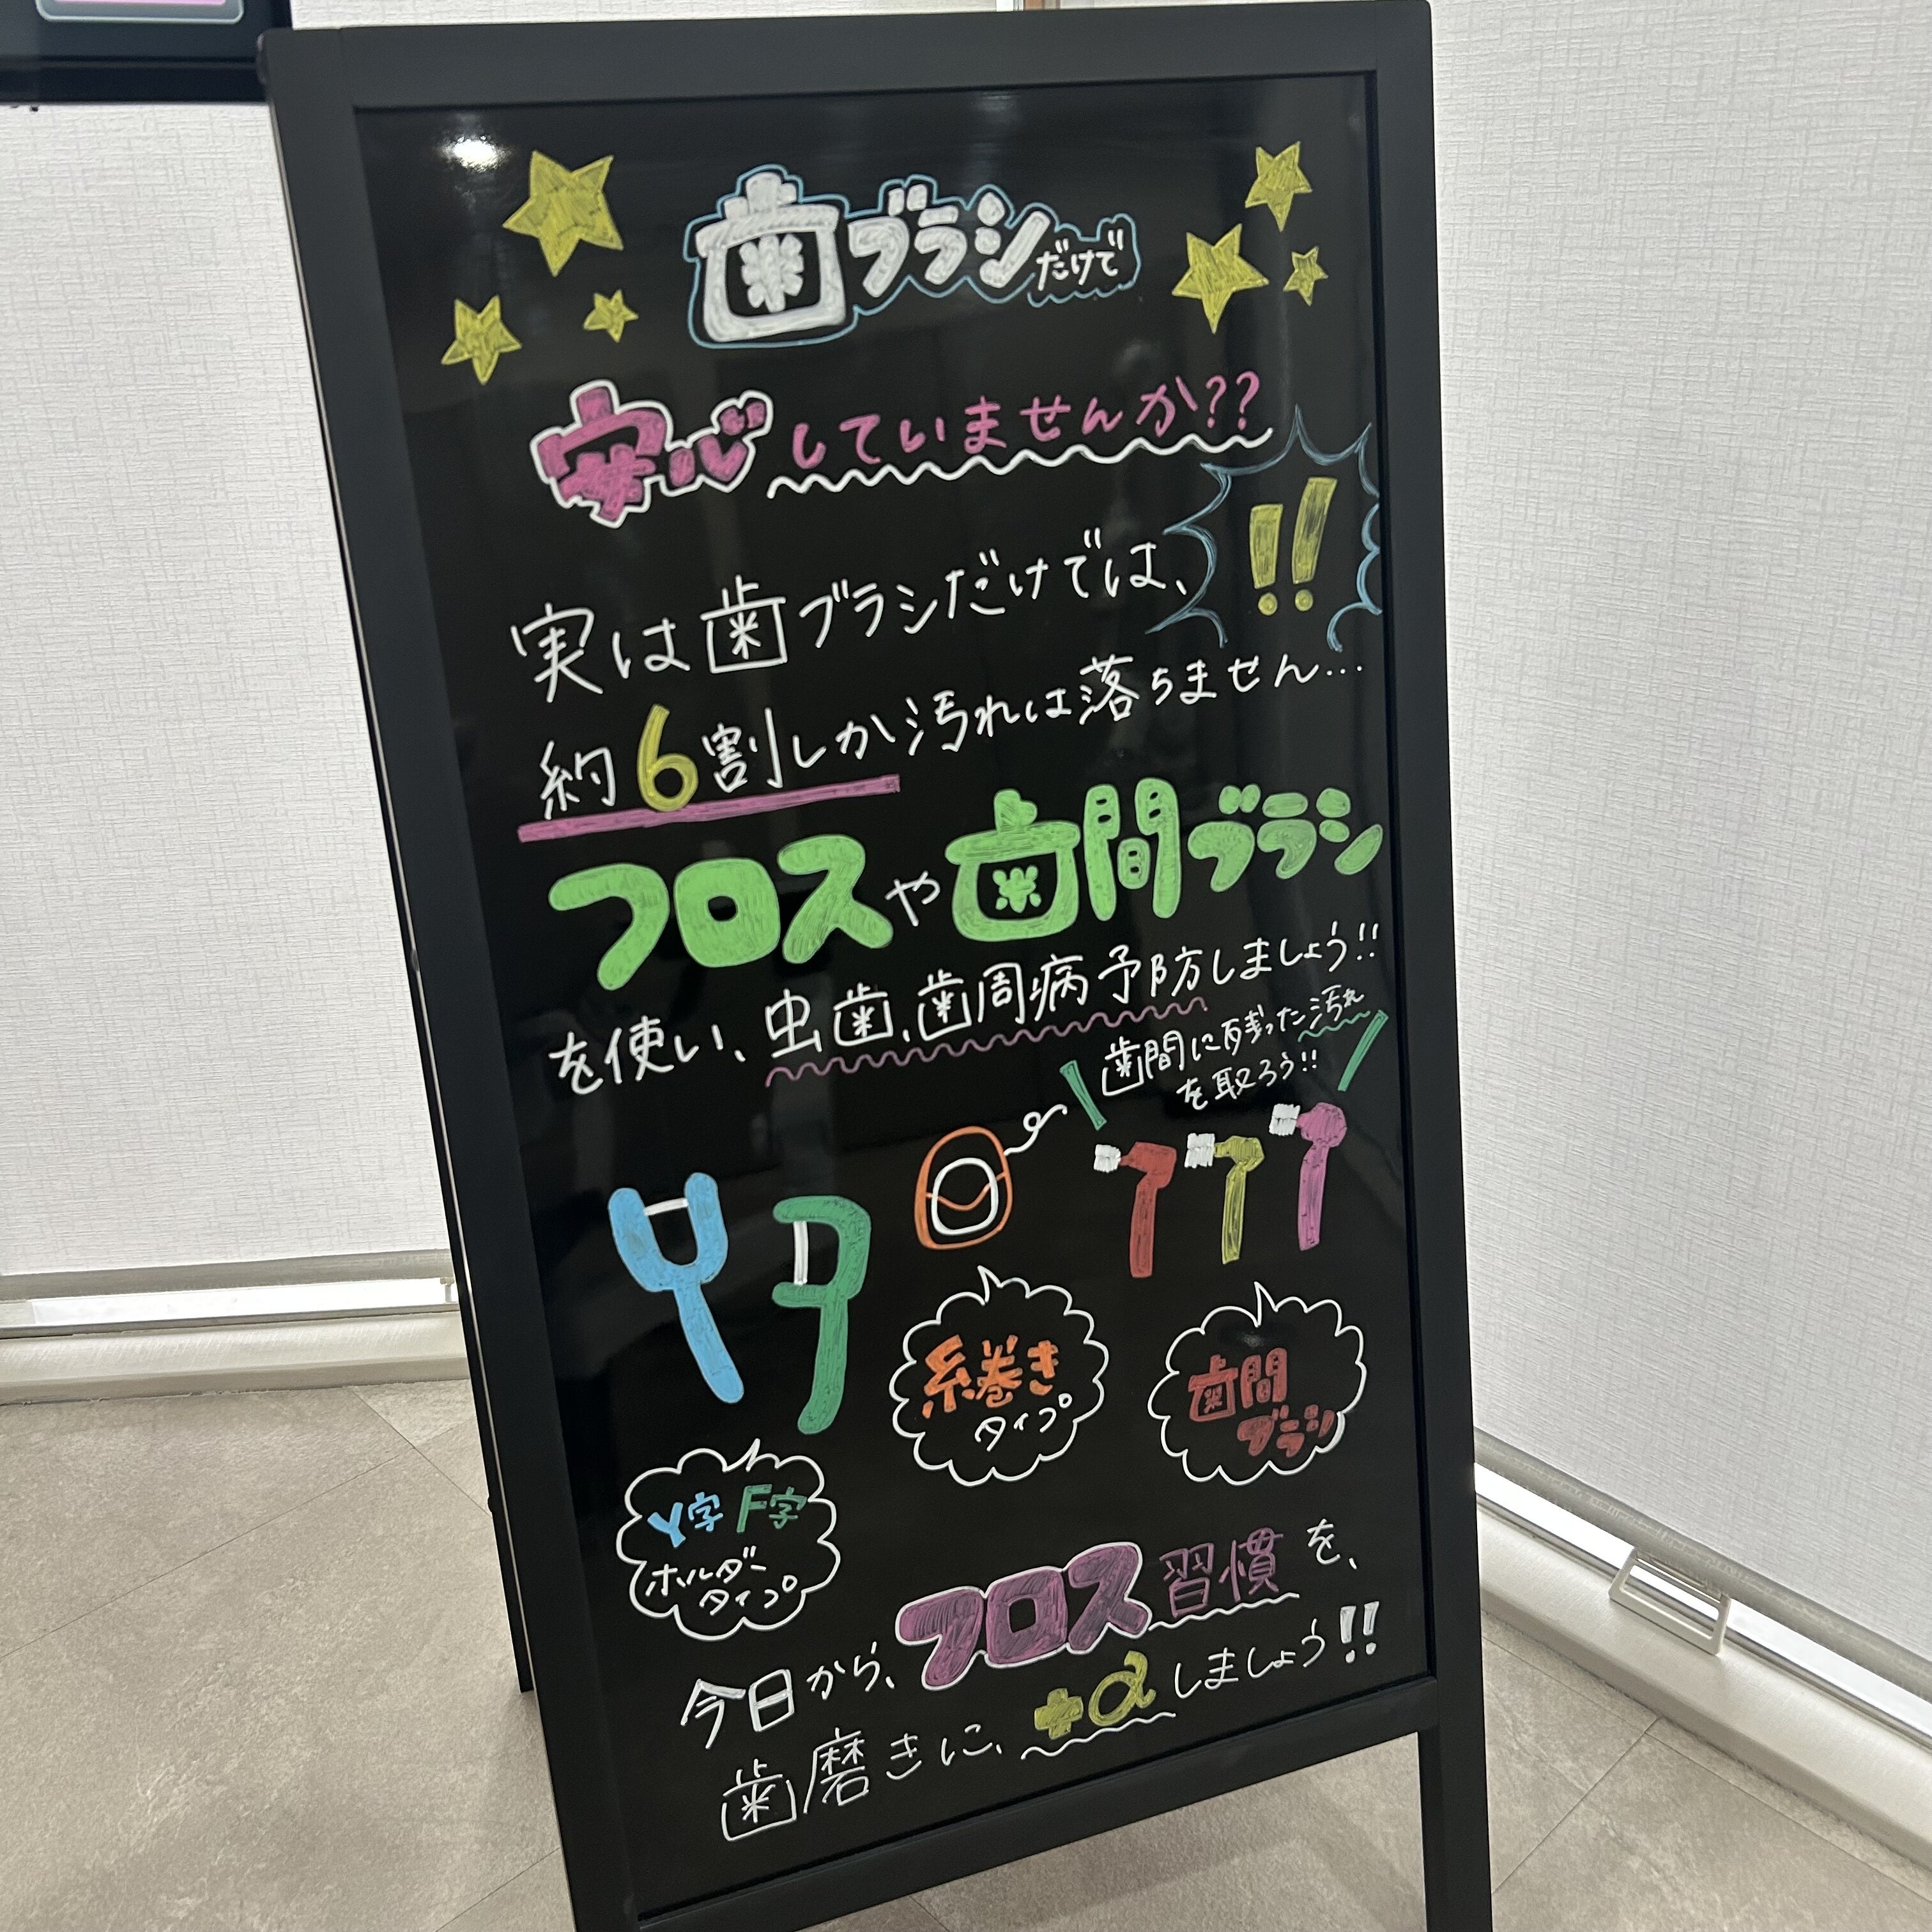 歯ブラシだけで
安心していませんか??
実は歯ブラシだけでは、!!
約6割しか汚れは落ちません…
フロスや歯間ブラシ
を使い、虫歯、歯周病予防しましょう!!
歯間に残った汚れ
を取ろう!!
糸巻き
タイプ
歯間
ブラシ
Y字 F字
ホルダー
タイプ
今日から、フロス習慣を、
歯磨きに、+αしましょう!!